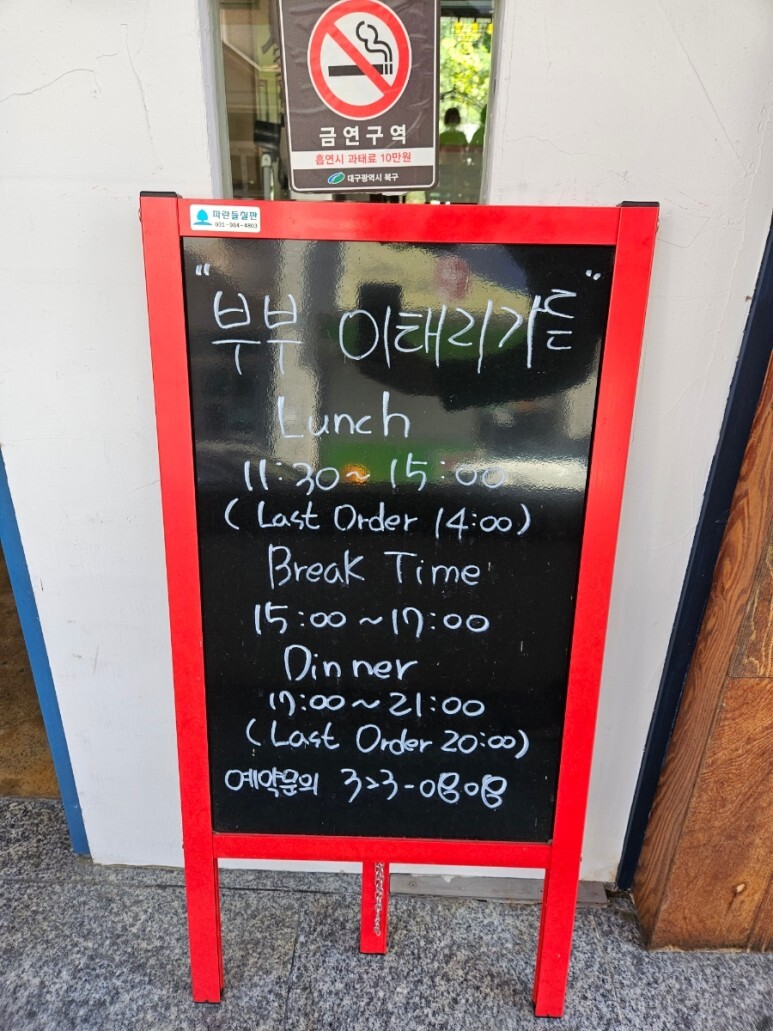 금연구역
흡연시 과태료 10만원
대구광역시 북구
파란들칠판
"부부 이태리가든"
Lunch
11:30~15:00
(Last Order 14:00)
Break Time
15:00~17:00
Dinner
17:00~21:00
(Last Order 20:00)
예약문의 323-0808